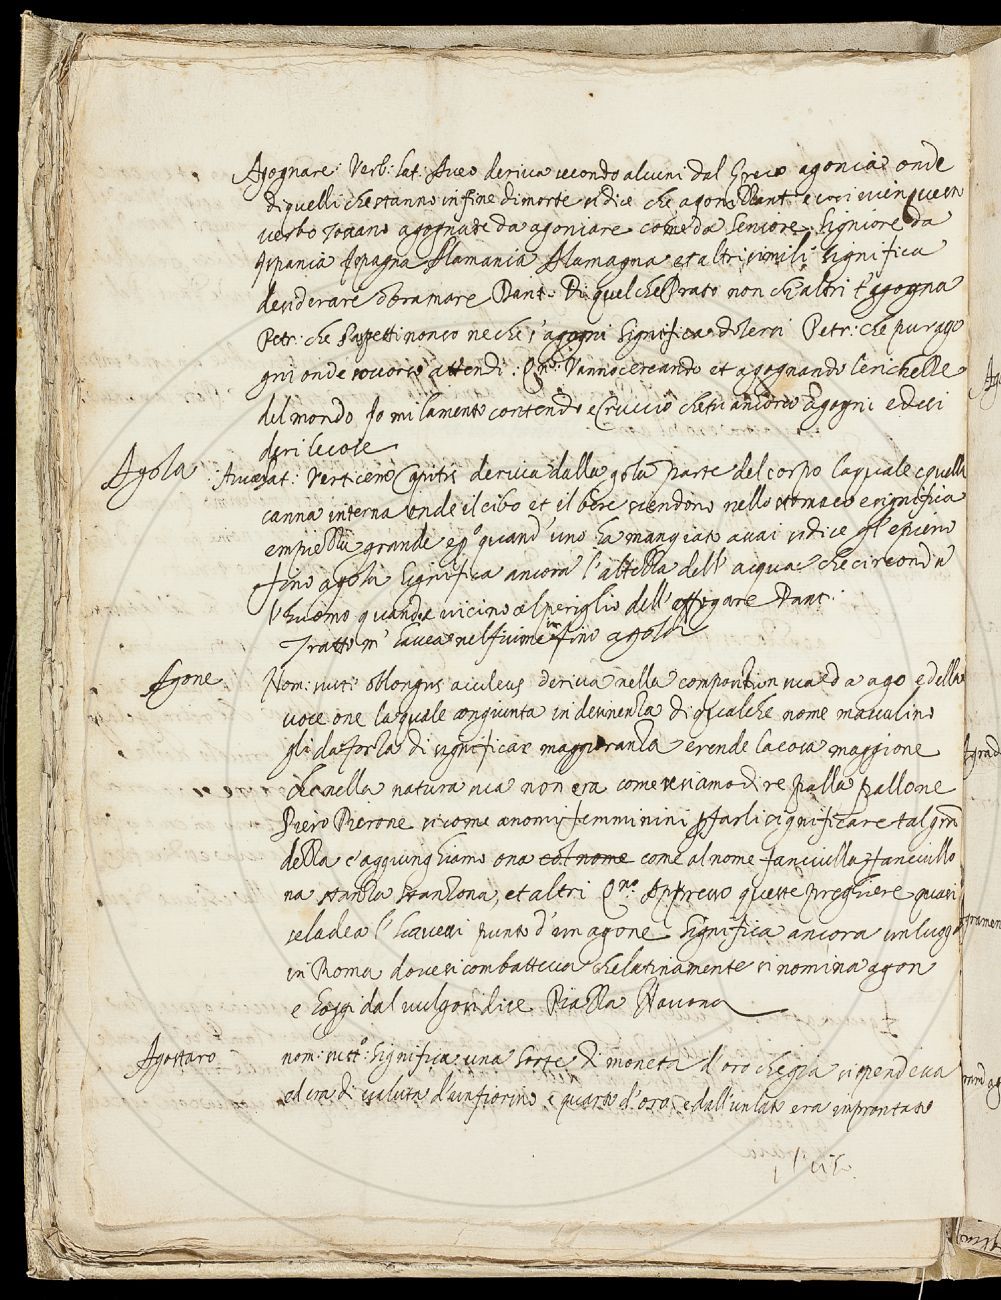 Agognare: Verb: lat: Aveo deriva secondo alcuni dal Greco agonia onde
di quelli che stanno in fine di morte si dice che agonizzant e così vien questo
verbo Toscano agognare da agoniare come da Seniore, Signiore da
Ispania Ispagna Alamania Alamagna et altri simili significa
desiderare o bramare Dant: Di quel che Prato non ch'altri t'agogna
Petr: che l'aspetti non so ne che s'agogni Significa dolersi Petr: che pur ago
gni onde soccorso attendi: Vanno cercando et agognando le richelle
del mondo Io mi lamento contendo e cruccio che tu ancora agogni e desi
deri lecose
Agola : lat: Verticem Capitis deriva dalla gola parte del corpo laquale è quella
canna interna onde il cibo et il bere scendono nello stomaco e significa
empiezza grande e p° quand'uno ha mangiato assai si dice gl'è pieno
fino agola significa ancora l'altezza dell' acqua che circonda
l'huomo quando è vicino al periglio dell'affogare Dant:
Tratto m' havea nel fiume in fino agola
Agone Nom: sust: oblongus aculeus deriva nella compositione sua da ago e della
voce one la quale congiunta in desinenza di qualche nome masculino
gli da forza di significar maggioranza e rende la cosa maggione
che nella natura sua non era come se siamo dire palla pallone
Piero Pierone si come a nomi femminini p farli significare tal gran
dezza s'aggiunghiamo ona col nome come al nome fanciulla fanciullo
na stanza stanzona, et altri Appresso queste preghiere quasi
seladea l'havessi punto d'un agone Significa ancora un luogo
in Roma dove si combatteva che latinamente si nomina agon
e hoggi dal vulgo si dice Piazza Navona
Agostaro nom: sust°: Significa una sorte di moneta d'oro che gia si spendeva
ed era di valuta d'un fiorino e quarto d'oro e dall'un lato era improntato